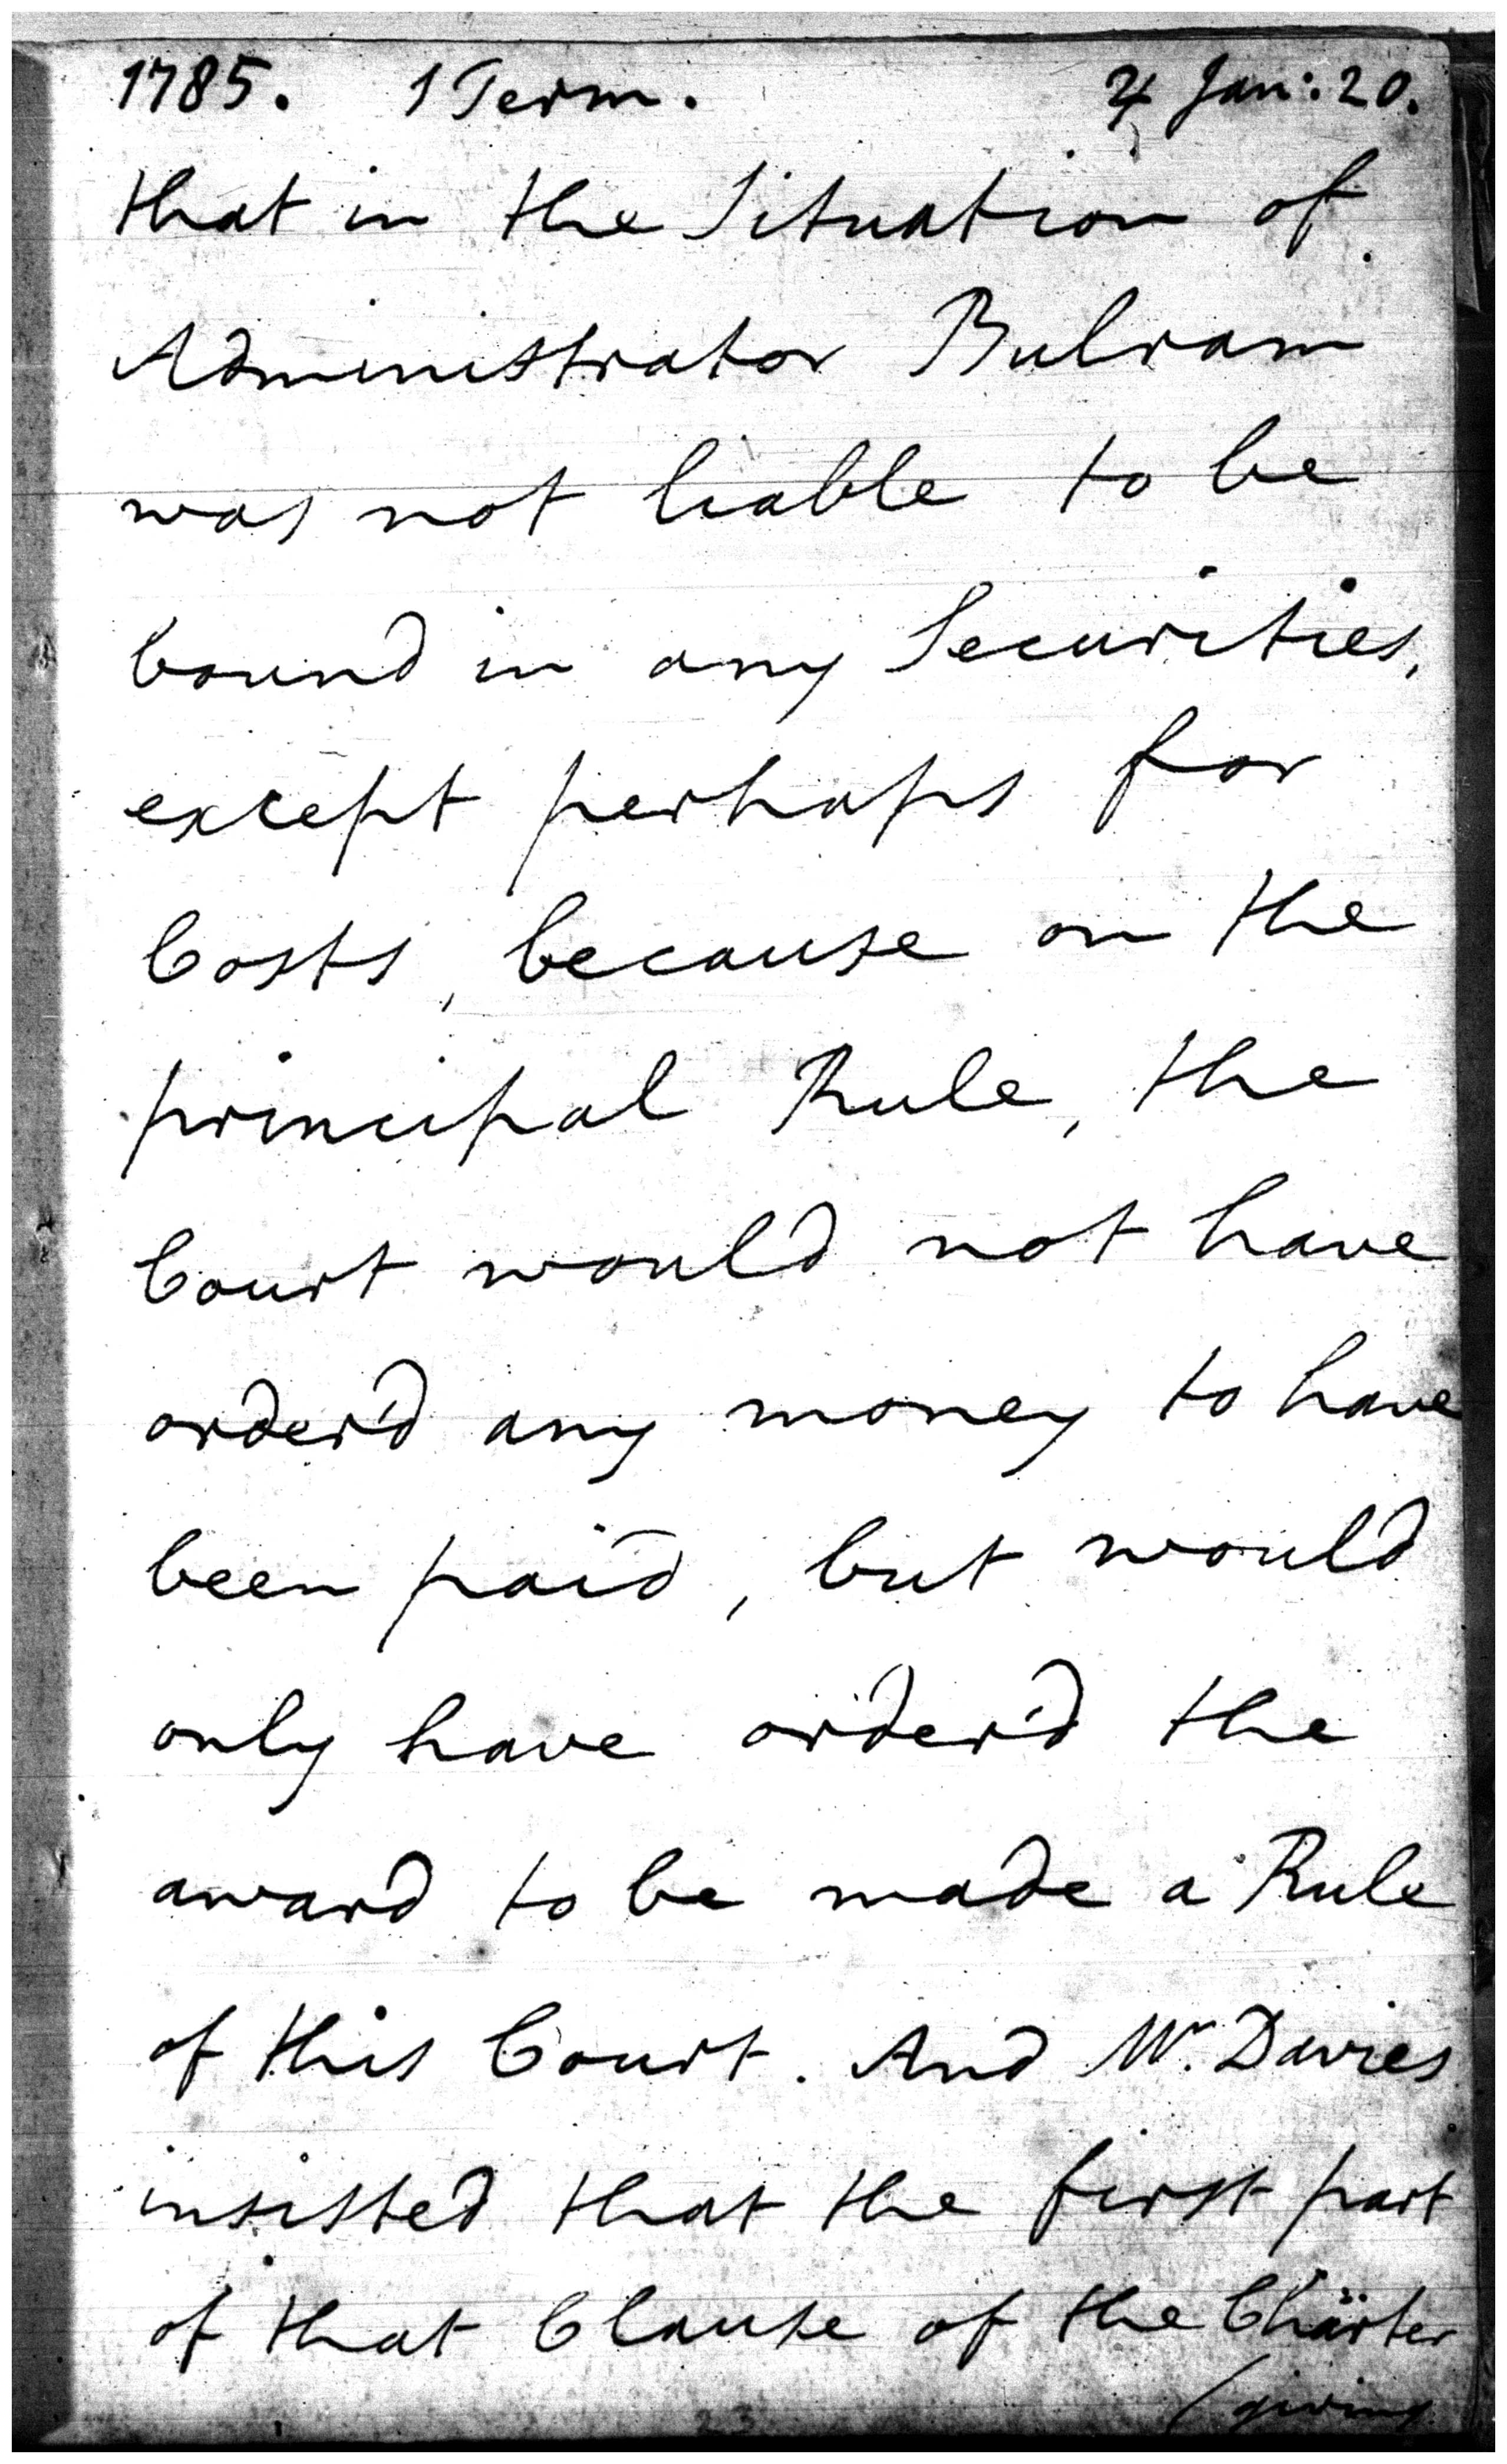 1785. 1 Term. ♃ Jan: 20.
that in the Situation of
Administrator Bulram
was not liable to be
bound in any Securities,
except perhaps for
Costs, because on the
principal Rule, the
Court would not have
order'd any money to have
been paid, but would
only have order'd the
award to be made a Rule
of this Court. And Mr. Davies
insisted that the first part
of that Clause of the Charter
(giving